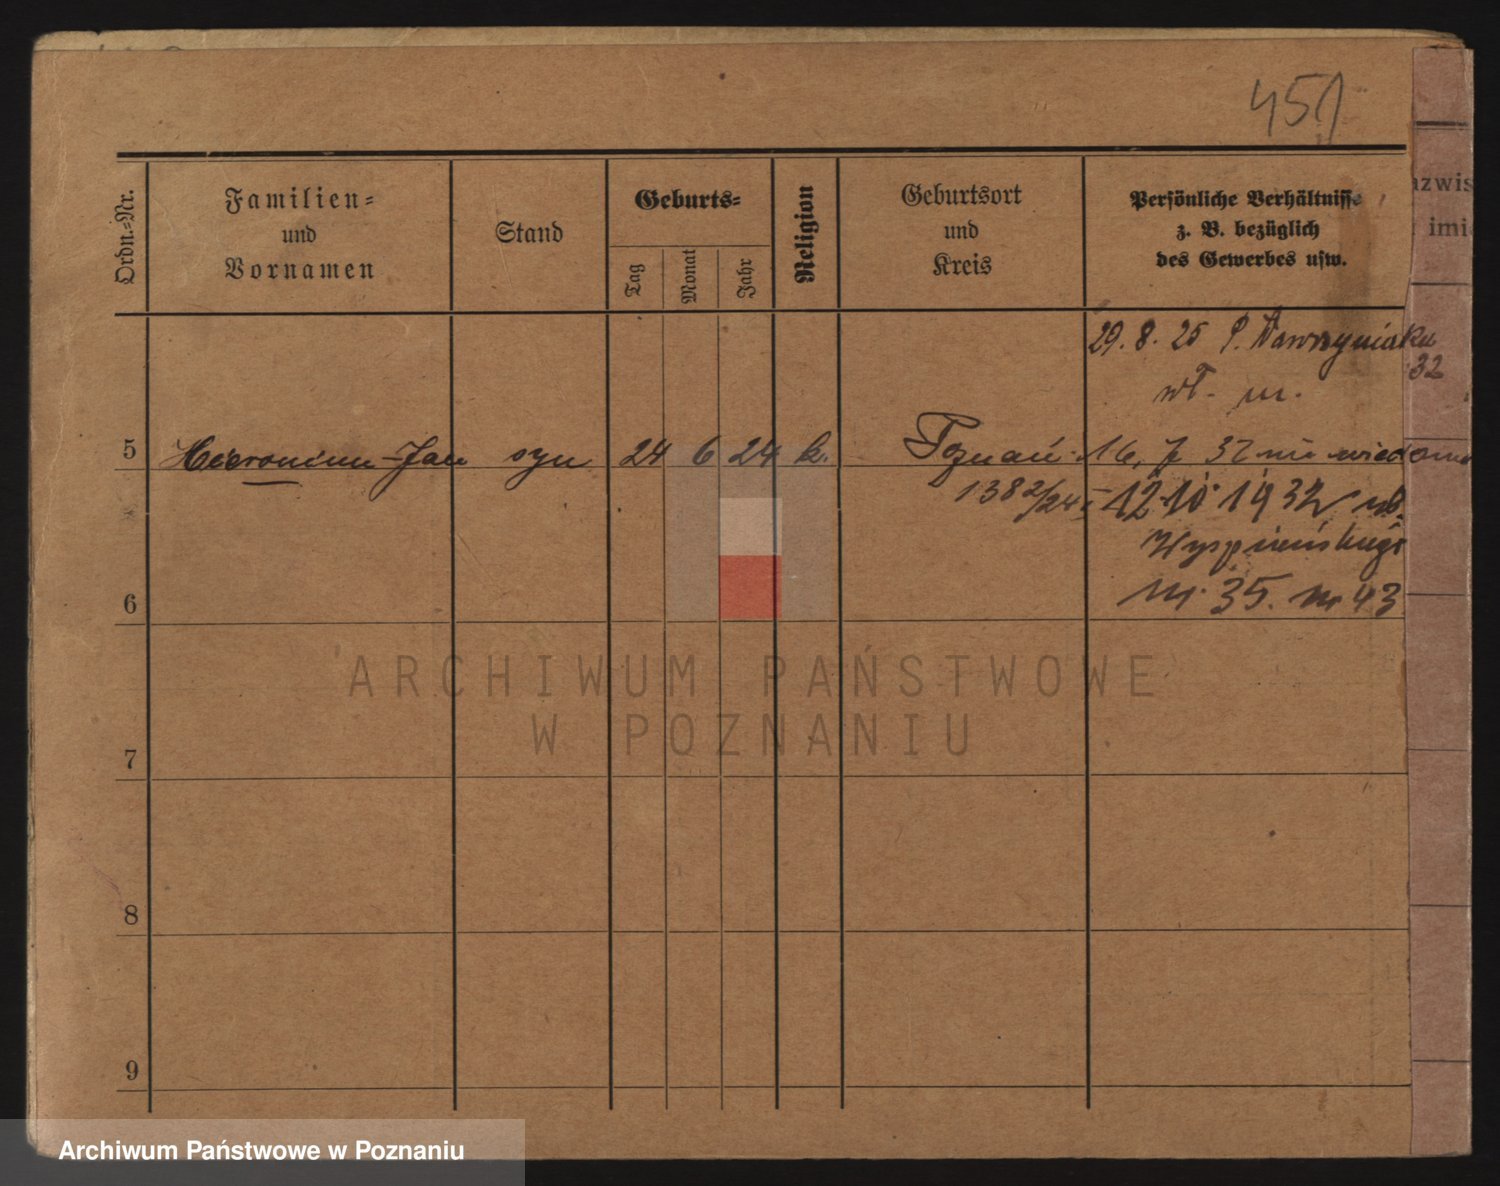 451
Ordn.-Nr.
Familien-
und
Vornamen
Stand
Geburts-
Tag
Monat
Jahr
Religion
Geburtsort
und
Kreis
Persönliche Verhältnisse
z. B. bezüglich
des Gewerbes usw.
azwis
imi
29. 8. 25 P. Wawrzyniaka
32
wł. m.
5 Hieronim-Jan syn 24 6 24 k. Poznań 16, 7 32 nie wiadomo
1382/24 12 10 1932 ul.
Wyspiańskiego
nr. 35. m 43
6
7
8
9
ARCHIWUM PAŃSTWOWE
W POZNANIU
Archiwum Państwowe w Poznaniu